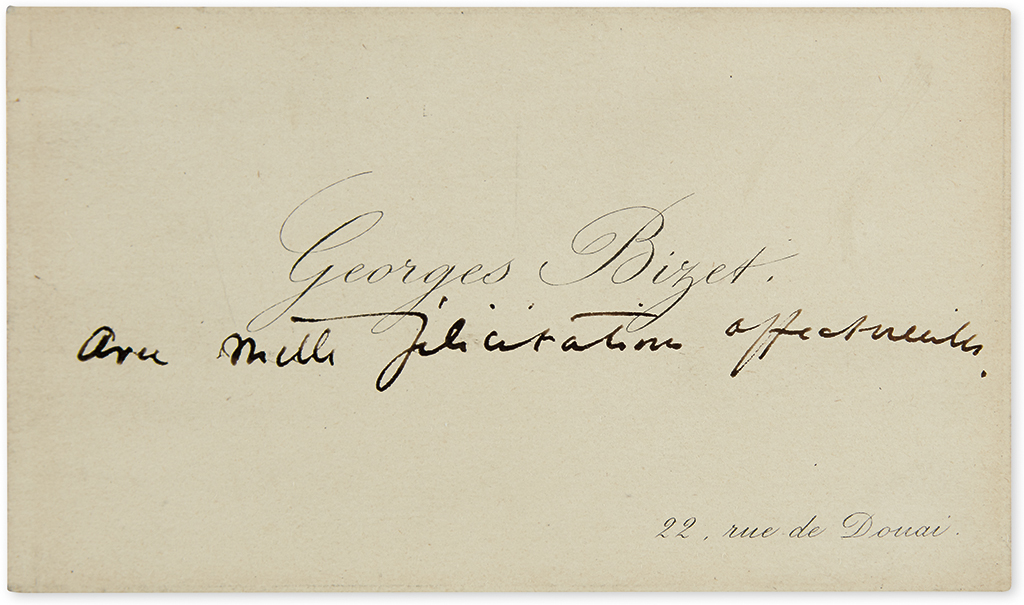 Georges Bizet.
avec mille félicitations affectueuses.
22, rue de Douai.